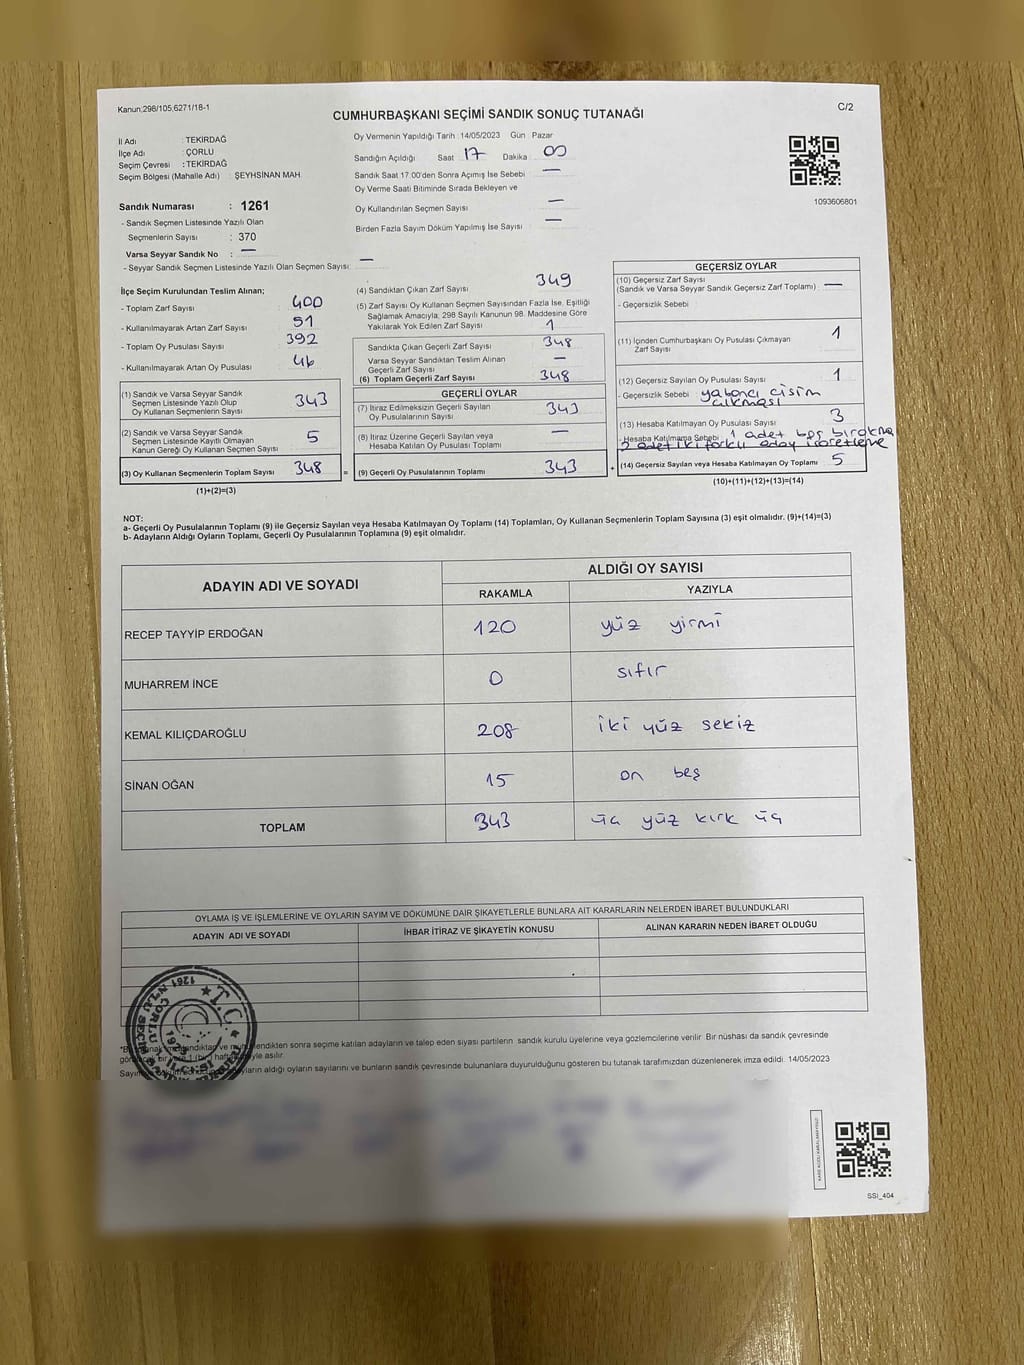 Kanun:298/105,6271/18-1
C/2
CUMHURBAŞKANI SEÇİMİ SANDIK SONUÇ TUTANAĞI
İl Adı : TEKİRDAĞ
İlçe Adı : ÇORLU
Seçim Çevresi : TEKİRDAĞ
Seçim Bölgesi (Mahalle Adı) : ŞEYHSİNAN MAH
Sandık Numarası : 1261
- Sandık Seçmen Listesinde Yazılı Olan
Seçmenlerin Sayısı : 370
Varsa Seyyar Sandık No : —
- Seyyar Sandık Seçmen Listesinde Yazılı Olan Seçmen Sayısı: —
Oy Vermenin Yapıldığı Tarih :14/05/2023 Gün : Pazar
Sandığın Açıldığı Saat : 17 Dakika : 00
Sandık Saat 17:00'den Sonra Açımış İse Sebebi : —
Oy Verme Saati Bitiminde Sırada Bekleyen ve
Oy Kullandırılan Seçmen Sayısı : —
Birden Fazla Sayım Döküm Yapılmış İse Sayısı : —
1093606801
İlçe Seçim Kurulundan Teslim Alınan;
- Toplam Zarf Sayısı : 400
- Kullanılmayarak Artan Zarf Sayısı : 51
- Toplam Oy Pusulası Sayısı : 392
- Kullanılmayarak Artan Oy Pusulası : 46
(1) Sandık ve Varsa Seyyar Sandık
Seçmen Listesinde Yazılı Olup
Oy Kullanan Seçmenlerin Sayısı : 343
(2) Sandık ve Varsa Seyyar Sandık
Seçmen Listesinde Kayıtlı Olmayan
Kanun Gereği Oy Kullanan Seçmen Sayısı : 5
(3) Oy Kullanan Seçmenlerin Toplam Sayısı : 348 =
(1)+(2)=(3)
(4) Sandıktan Çıkan Zarf Sayısı : 349
(5) Zarf Sayısı Oy Kullanan Seçmen Sayısından Fazla İse, Eşitliği
Sağlamak Amacıyla, 298 Sayılı Kanunun 98. Maddesine Göre
Yakılarak Yok Edilen Zarf Sayısı : 1
Sandıkta Çıkan Geçerli Zarf Sayısı : 348
Varsa Seyyar Sandıktan Teslim Alınan
Geçerli Zarf Sayısı : —
(6) Toplam Geçerli Zarf Sayısı : 348
GEÇERLİ OYLAR
(7) İtiraz Edilmeksizin Geçerli Sayılan
Oy Pusulalarının Sayısı : 343
(8) İtiraz Üzerine Geçerli Sayılan veya
Hesaba Katılan Oy Pusulası Toplamı : —
(9) Geçerli Oy Pusulalarının Toplamı : 343 +
GEÇERSİZ OYLAR
(10) Geçersiz Zarf Sayısı
(Sandık ve Varsa Seyyar Sandık Geçersiz Zarf Toplamı) : —
- Geçersizlik Sebebi :
(11) İçinden Cumhurbaşkanı Oy Pusulası Çıkmayan
Zarf Sayısı : 1
(12) Geçersiz Sayılan Oy Pusulası Sayısı : 1
- Geçersizlik Sebebi : yabancı cisim
çıkması
(13) Hesaba Katılmayan Oy Pusulası Sayısı : 3
- Hesaba Katılmama Sebebi : 1 adet boş bırakma
2 adet iki farklı aday işaretleme
(14) Geçersiz Sayılan veya Hesaba Katılmayan Oy Toplamı : 5
(10)+(11)+(12)+(13)=(14)
NOT:
a- Geçerli Oy Pusulalarının Toplamı (9) ile Geçersiz Sayılan veya Hesaba Katılmayan Oy Toplamı (14) Toplamları, Oy Kullanan Seçmenlerin Toplam Sayısına (3) eşit olmalıdır. (9)+(14)=(3)
b- Adayların Aldığı Oyların Toplamı, Geçerli Oy Pusulalarının Toplamına (9) eşit olmalıdır.
ADAYIN ADI VE SOYADI
ALDIĞI OY SAYISI
RAKAMLA YAZIYLA
RECEP TAYYİP ERDOĞAN 120 yüz yirmi
MUHARREM İNCE 0 sıfır
KEMAL KILIÇDAROĞLU 208 iki yüz sekiz
SİNAN OĞAN 15 on beş
TOPLAM 343 üç yüz kırk üç
OYLAMA İŞ VE İŞLEMLERİNE VE OYLARIN SAYIM VE DÖKÜMÜNE DAİR ŞİKAYETLERLE BUNLARA AİT KARARLARIN NELERDEN İBARET BULUNDUKLARI
ADAYIN ADI VE SOYADI İHBAR İTİRAZ VE ŞİKAYETİN KONUSU ALINAN KARARIN NEDEN İBARET OLDUĞU
T.C.
1261
endikten sonra seçime katılan adayların ve talep eden siyasi partilerin sandık kurulu üyelerine veya gözlemcilerine verilir. Bir nüshası da sandık çevresinde
asılır.
aldığı oyların sayılarını ve bunların sandık çevresinde bulunanlara duyurulduğunu gösteren bu tutanak tarafımızdan düzenlenerek imza edildi. 14/05/2023
SSİ_404